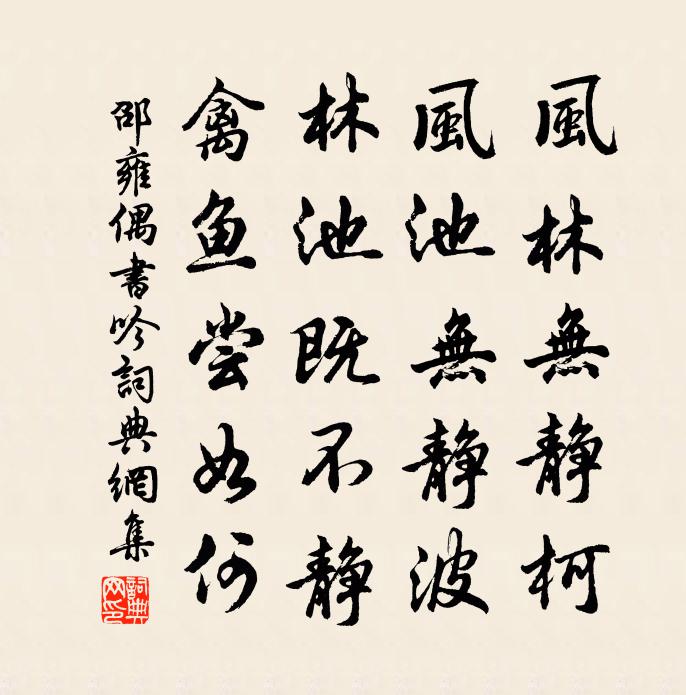 風林無静柯
風池無静波
林池既不静
禽鱼尝如何
邵雍偶書吟詞典網集
詞典網印